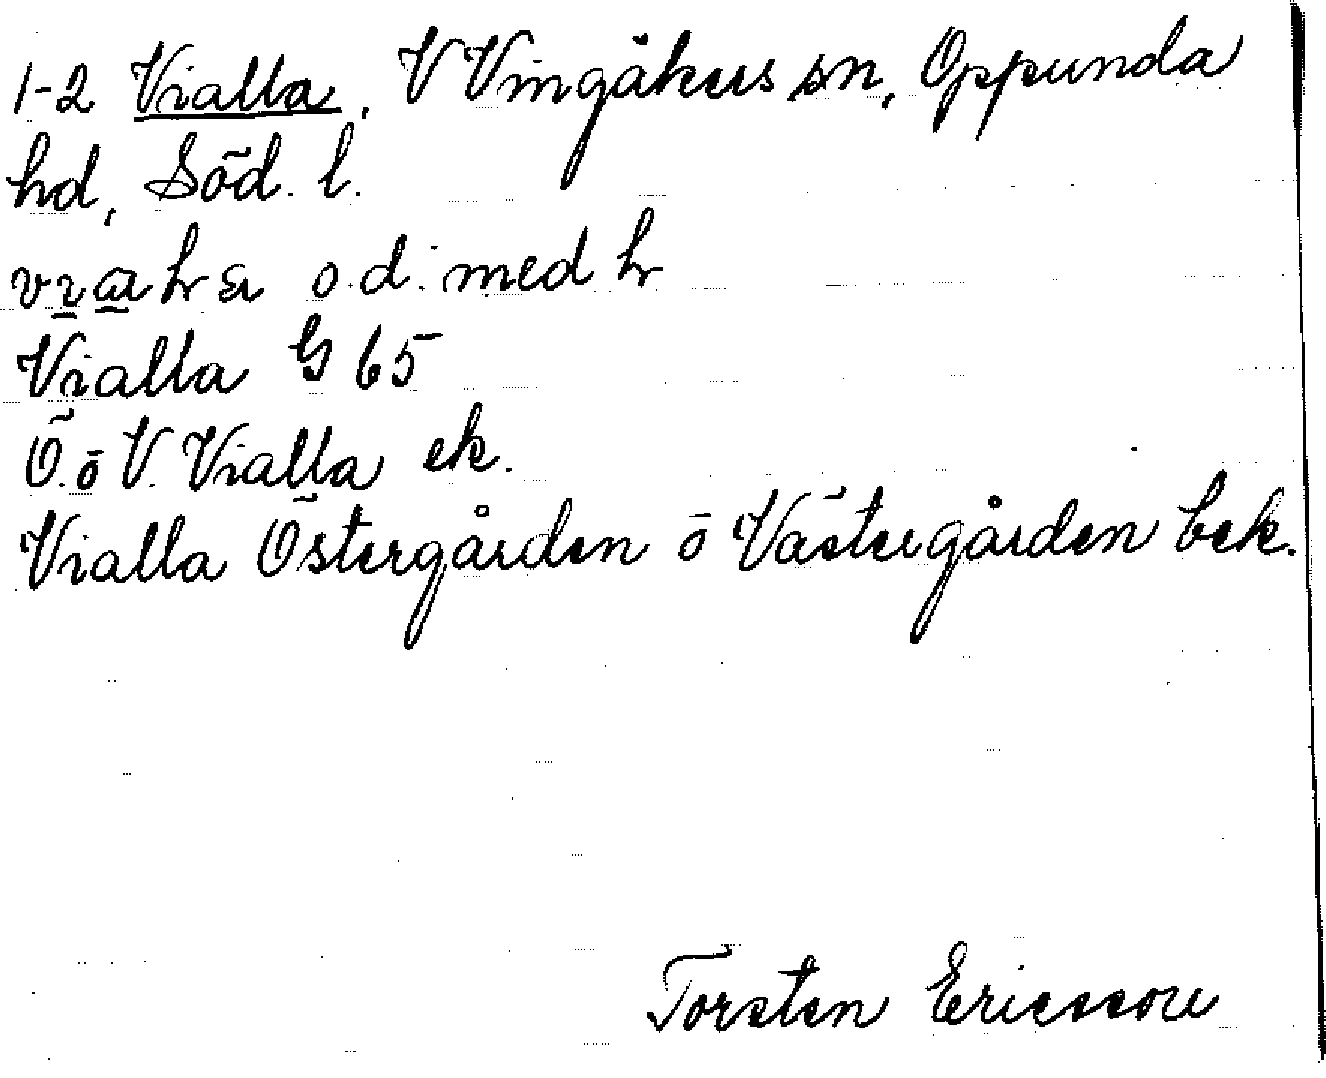 1-2 Vialla, V Vingåkers sn, Oppunda
hd, Söd. l.
o. d. med
Vialla G 65
Ö. o V. Vialla ek.
Vialla Östergården o Västergården bek.
Torsten Ericsson